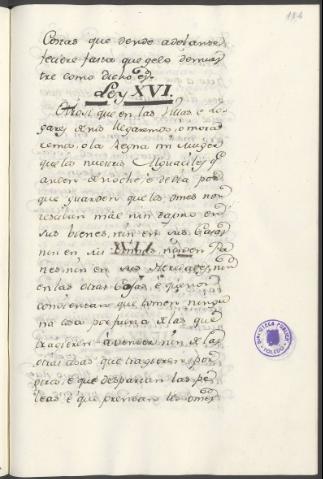 184
Costas que dende adelante
feciere fasta que gelo demues
tre como dicho es.
Ley XVI.
Otrosi que en las Villas e lo
gares donde llegaremos, o mora
remos, o la Reyna mi Muger
que los nuestros Alguaciles q.
anden de noche, e de dia por
que guarden que los omes non
resciban mal nin rapto en
sus bienes, nin en sus
nin en sus nin en Pa
nes nin en sus nin
en las otras cosas, e que non
consientan que tomen ningu
na cosa por fuerza a los que
traxieren a vender nin de las
otras cosas que traxeren por
e que despartan las pe
leas e que prendan los omes
BIBLIOTECA PUBLICA
TOLEDO